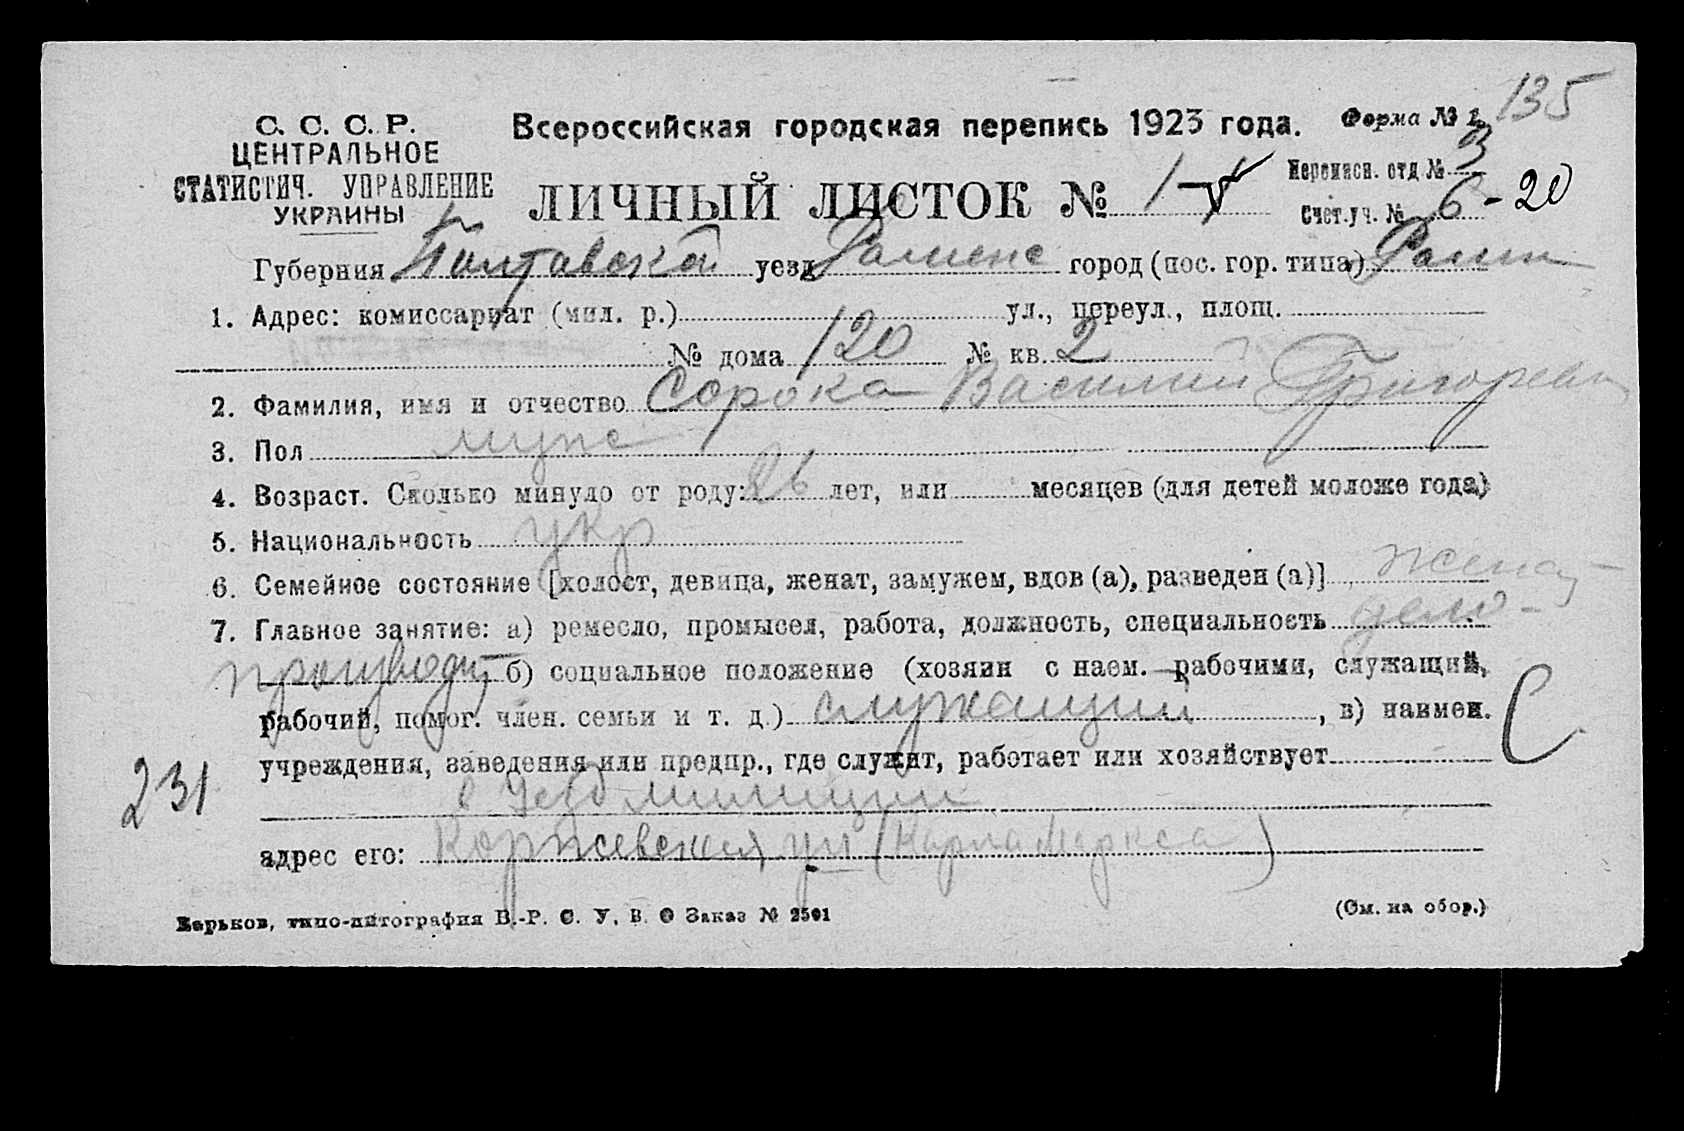 135
С. С. С. Р.
ЦЕНТРАЛЬНОЕ
СТАТИСТИЧ. УПРАВЛЕНИЕ
УКРАИНЫ
Всероссийская городская перепись 1923 года.
Форма № 1.
ЛИЧНЫЙ ЛИСТОК № 1
Переписн. отд № 3
Счет.уч. № 6 - 20
Губерния Полтавской уезд Роменс город (пос. гор. типа) Ромны
1. Адрес: комиссариат (мил. р.) ул., переул., площ.
№ дома 120 № кв. 2
2. Фамилия, имя и отчество Сорока Василий Григореви
3. Пол мужс
4. Возраст. Сколько минуло от роду: 26 лет, или месяцев (для детей моложе года)
5. Национальность укр
6. Семейное состояние [холост, девица, женат, замужем, вдов (а), разведен (а)] женат
7. Главное занятие: а) ремесло, промысел, работа, должность, специальность дело-
производит б) социальное положение (хозяин с наем. рабочими, служащий,
рабочий, помог. член. семьи и т. д.) служащий, в) наимен.
С
учреждения, заведения или предпр., где служит, работает или хозяйствует
231
в Уезд милиции
адрес его: Коржевская ул (Карла Маркса)
Харьков, типо-литография В.-Р. С. У. В. О Заказ № 2501
(См. на обор.)